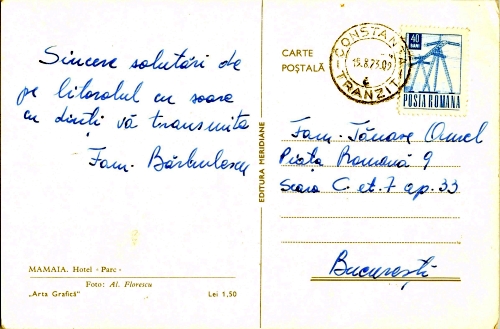 Sincere salutări de
pe litoralul cu soare
cu dînții vă transmite
Fam. Bărbulescu
MAMAIA. Hotel "Parc"
Foto: Al. Florescu
„Arta Grafică"
Lei 1,50
EDITURA MERIDIANE
CARTE
POȘTALĂ
CONSTANȚA
15.8.73.09
TRANZIT
40
BANI
POSTA ROMANA
Fam. Tănase Aurel
Piața Romană 9
Scara C et. 7 ap. 33
București